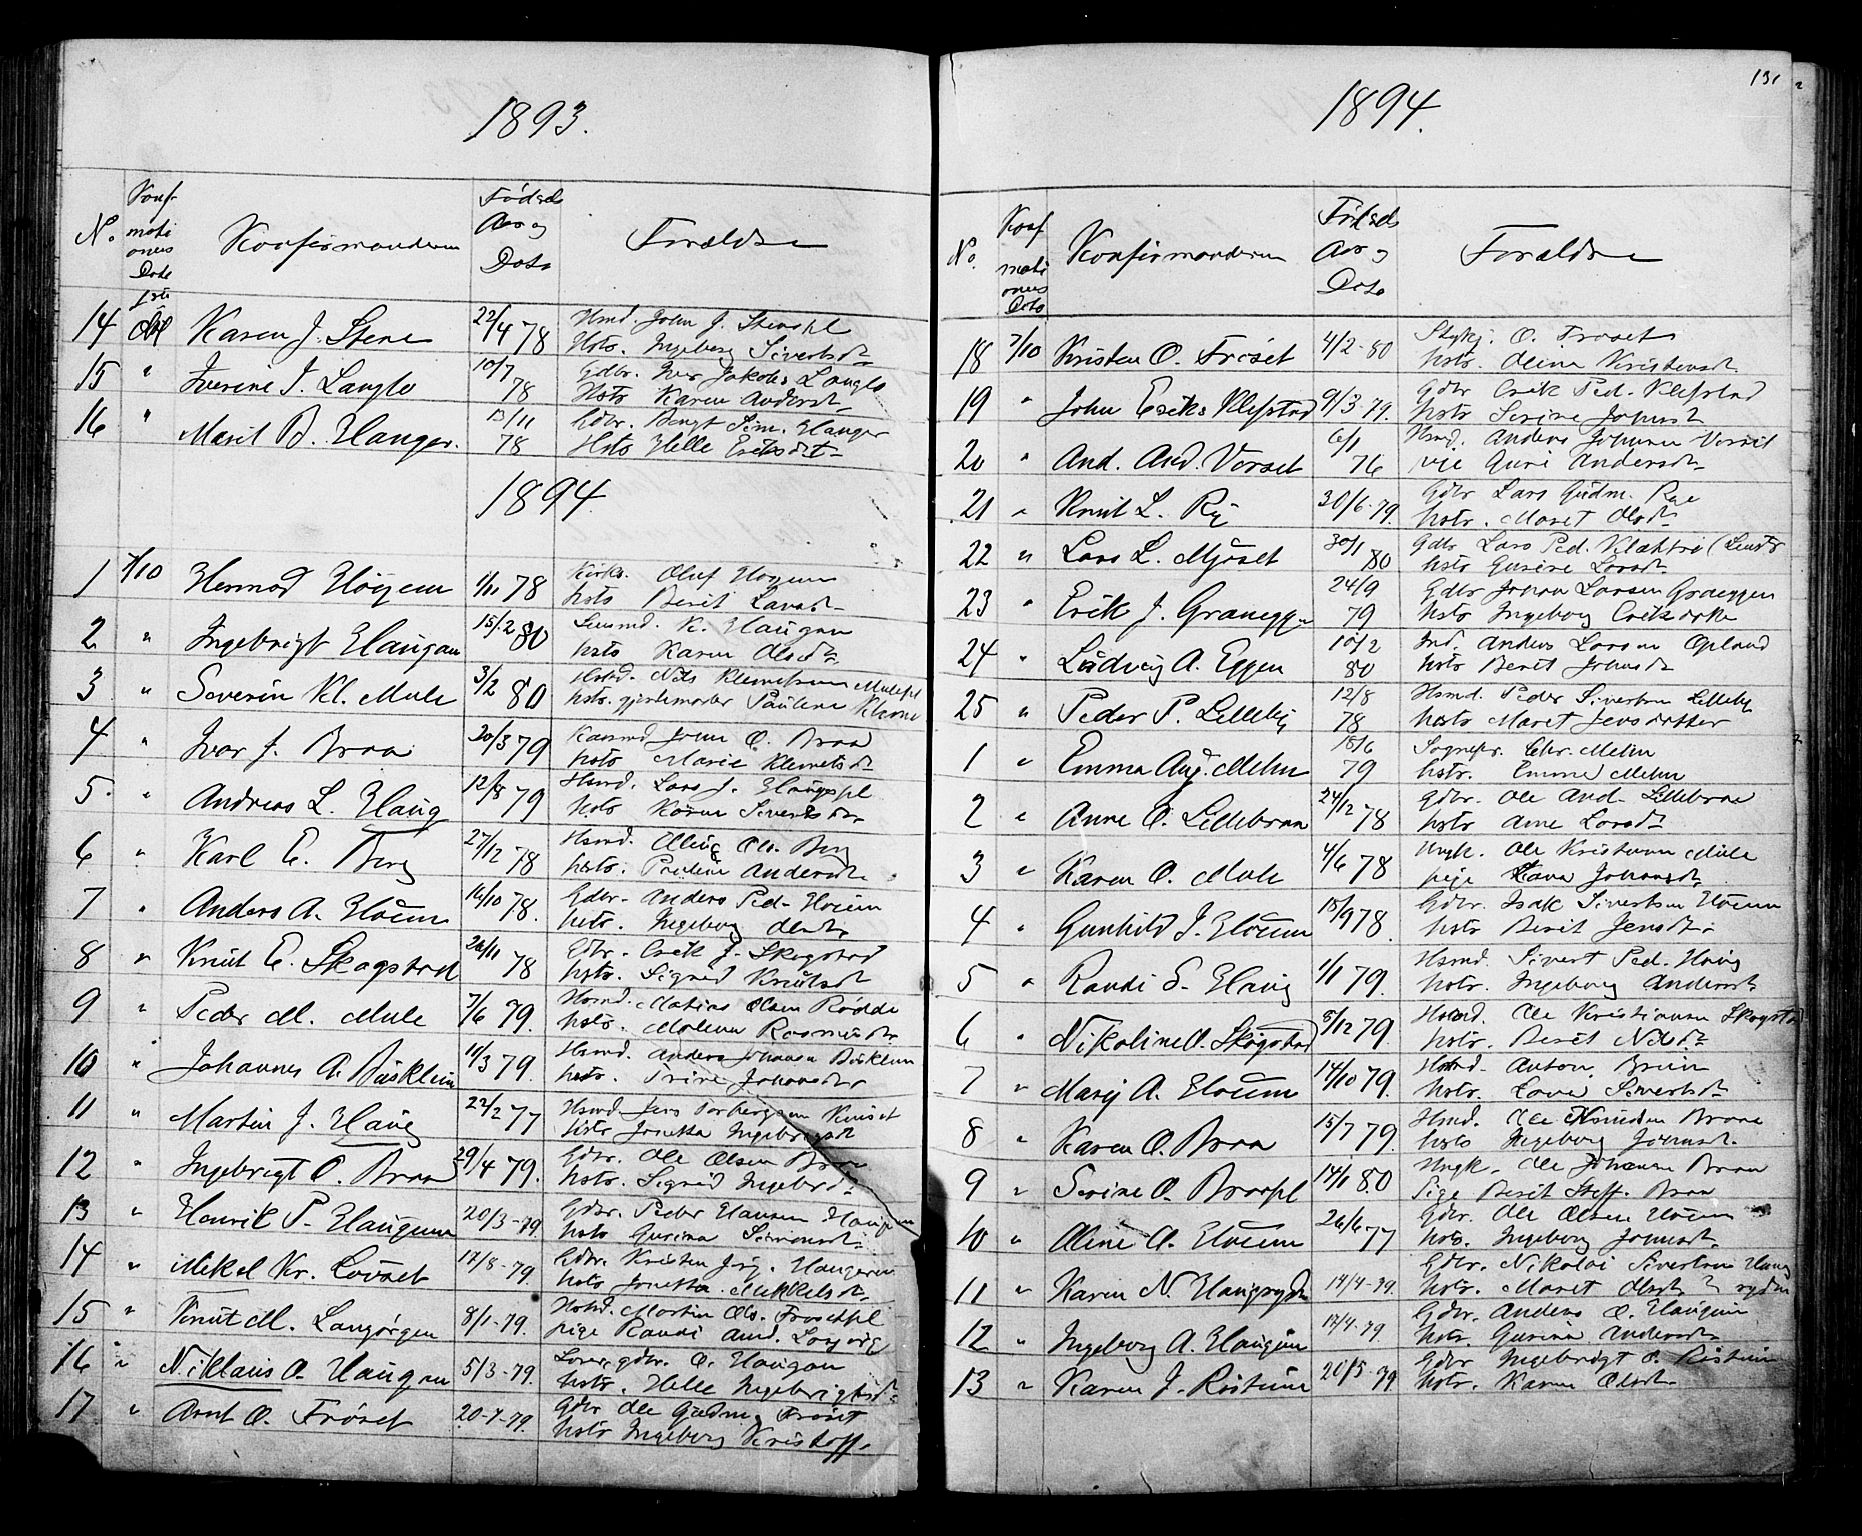 1893.
No. Konfirmationens Dato Konfirmanderne Fødsels Aar og Dato Forældre
14 1ste Okt Karen J. Stene 22/4 78 Husmd. John J. Stenepl
Hstr. Ingeborg Sivertsdt
15 " Iverine I. Langlo 10/7 78 Gdbr. Iver Jakobs Langlo
Hstr Karen Andersdt
16 " Marit B. Hanger. 13/11 78 Gdbr. Bengt Sim. Hanger
Hstr Helle Eriksdt
1894.
1 7/10 Hermod Højem 1/11 78 Kirks. Oluf Hojem
hstr Berit Larsdt
2 " Ingebrigt Haugan 15/12 80 K. Haugan
hstr Karen Olsdt
3 " Severin Kl. Mule 3/2 80 Nils Klemetsen Mulepl
hstr. Pauline
4 " Ivar J. Braa 20/3 79 John O. Braa
hstr Marie Klemetsdt
5. " Andreas L. Haug 12/8 79 Husmd. Lars J. Haugspl
hstr Karen Sivertsdt
6 " Karl E. Berg 27/12 78 Husmd. Ols. Berg
hstr. Andersdt
7 " Anders A. Hoem 16/10 78. Gdbr. Anders Ped. Hoem
hstr. Ingeborg Olsdt
8 " Knut E. Skogstad 26/11 78 Gdbr. Erik J. Skogstad
hstr. Sigrid Knutsdt
9 " Peder M. Mule 7/6 79. Husmd. Matias Olsen Rødde
hstr. Malena Rasmusdt
10 " Johannes A. Busklein 11/3 79. Husmd. Anders Johansen Busklein
hstr. Trine Johansdt
11 " Martin J. Haug 22/2 77 Husmd. Jens Torbergsen
hstr Jonetta Ingebrigtsdt
12 " Ingebrigt O. Braa 29/4 79. Gdbr. Ole Olsen Braa
hstr. Sigrid Ingebrdt
13 " Henrik P. Haugum 20/3-79. Gdbr. Peder Hansen Haugum
hstr Gurina Simonsdt
14 " Mikal Kr. Lovset 17/8-79. Gdbr. Kristen Jørg. Haugeren
hstr Jonetta Mikkelsdt
15 " Knut M. Langørgen 8/1-79. Husmd. Martin Ols. Frosetpl
pige Randi And.
16 " Niklaus O. Haugan 5/3-79. gdbr. O. Haugan
hstr. Helle Ingebrigtsdt
17 " Arnt O. Frøset 20-7-79. Gdbr Ole Gudm. Frøset
hstr Ingeborg Kristoff.
131
1894.
No. Konfirmationens Dato Konfirmanderne Fødsels Aar og Dato Forældre
18 7/10 Kristen O. Frøset 4/2-80 O. Frøset
hstr. Oline Kristensdt
19 " John Eriks Klefstad 9/3-79. Gdbr Erik Ped. Klefstad
hstr Serine Johnsdt
20 " And. And. Vorset 6/1 76 Husmd. Anders Johnsen Vorset
Guri Andersdt
21 " Knut L. Ry 30/6-79. Gdbr Lars Gudm. Rye
hstr. Maret Olsdt
22 " Lars L. Mjøset 30/1 80 Gdbr Lars Ped.
hstr Gurine Larsdt
23 " Erik J. Graneggen 24/9 79 Gdbr Johan Larsen Graneggen
hstr Ingeborg Eriksdtr
24 " Ludvig A. Eggen 10/2 80 Anders Larsen Opland
hstr Berit Johnsdt
25 " Peder P. Lilleby 12/8 78 Husmd. Peder Sivertsen Lilleby
hstr Maret Jensdatter
1 " Emma Aug. Mehn 18/6 79 Sognepr. Chr. Mehn
hstr. Emma Mehn
2 " Anne O. Lillebraa 24/12 78 Gdbr. Ole And. Lillebraa
hstr Ane Larsdt
3 " Karen O. Mule 4/6 78 Ungk. Ole Kristiansen Mule
pige Johansdt
4 " Gunhild I. Hoem 18/9 78. Gdbr. Isak Sivertsen Hoem
hstr Berit Jensdt
5 " Randi S. Haug 1/1 79 Husmd. Sivert Ped. Haug
hstr. Ingeborg Andersdt
6 " Nikoline O. Skogstad 8/12 79. Ole Kristiansen Skogstad
hstr. Berit Nilsdt
7 " Marij A. Hoem 14/10 79. Anton
hstr. Sivertsdt
8 " Karen O. Braa 15/7 79. Husmd. Ole Braa
hstr Ingeborg Johnsdt.
9 " Serine O. Braapl 14/1 80 Ungk. Ole Johnsen Braa
Pige Berit Steff. Braa
10 " Oline O. Hoem 26/6 77 Gdbr. Ole Olsen Hoem
hstr. Ingeborg Johnsdt.
11 " Karen N. Haugrydn 14/4-79. Gdbr. Nikolai Sivertsen Haug
hstr. Maret Olsdt rydn
12 " Ingeborg A. Haugum 17/4-79 Gdbr. Anders O. Haugum
hstr. Gurina Andersdt
13 " Karen I. Ristum 20/5-79 Gdbr Ingebrigt O. Ristum
hstr. Karen Olsdt